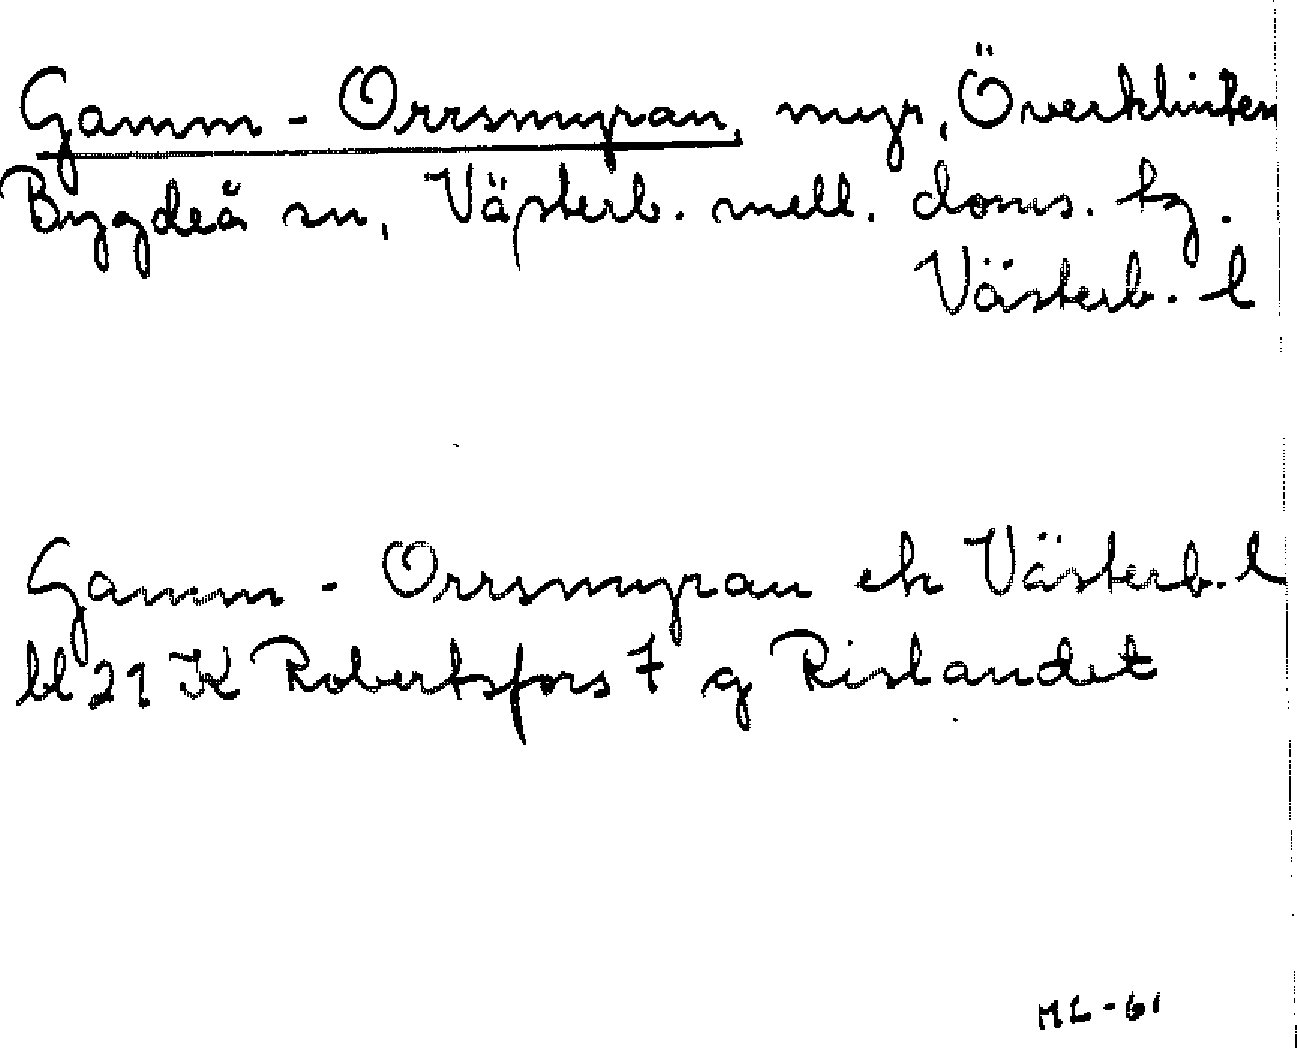 Gamm - Orrsmyran, myr, Överklinten
Bygdeå sn, Västerb. mell. doms. tg.
Västerb. l
Gamm - Orrsmyran ek Västerb. l
bl 21 K Robertsfors 7 g Rislandet
ML - 61